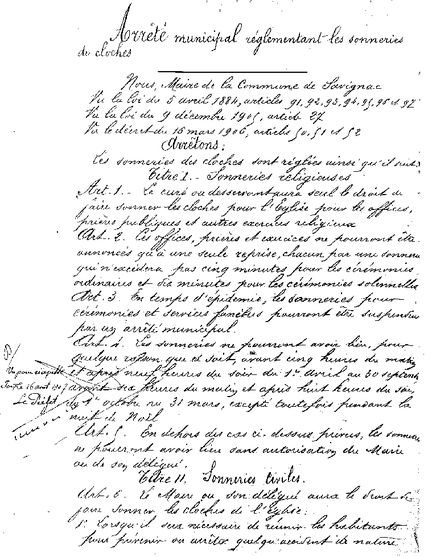 Arrêté municipal réglementant les sonneries
de cloches
Nous, Maire de la Commune de Savignac
Vu la loi du 5 avril 1884, articles 91, 92, 93, 94, 95, 96 et 97
Vu la loi du 9 décembre 1905, article 27
Vu le décret du 16 mars 1906, articles 50, 51 et 52
Arrêtons:
Les sonneries des cloches sont réglées ainsi qu'il suit:
Titre I. Sonneries religieuses
Art. 1. Le curé ou desservant aura seul le droit de
faire sonner les cloches pour l'Eglise pour les offices,
prières publiques et autres exercices religieux
Art. 2. Ces offices, prières et exercices ne pourront être
annoncés qu'à une seule reprise, chacun par une sonnerie
qui n'excèdera pas cinq minutes pour les cérémonies
ordinaires et dix minutes pour les cérémonies solennelles
Art. 3. En temps d'épidémie, les sonneries pour
cérémonies et services funèbres pourront être suspendues
par un arrêté municipal.
Art. 4. Les sonneries ne pourront avoir lieu, pour
quelque raison que ce soit, avant cinq heures du matin
et après neuf heures du soir du 1er avril au 30 septembre
avant six heures du matin et après huit heures du soir
du 1er octobre au 31 mars, excepté toutefois pendant la
nuit de Noël
Vu pour
Le Préfet
Art. 5. En dehors des cas ci-dessus prévus, les sonneries
ne pourront avoir lieu sans autorisation du Maire
ou de son délégué.
Titre II. Sonneries civiles.
Art. 6. Le Maire ou son délégué aura le droit de
faire sonner les cloches de l'Eglise:
1° Lorsqu'il sera nécessaire de réunir les habitants
pour prévenir ou arrêter quelqu'accident de nature